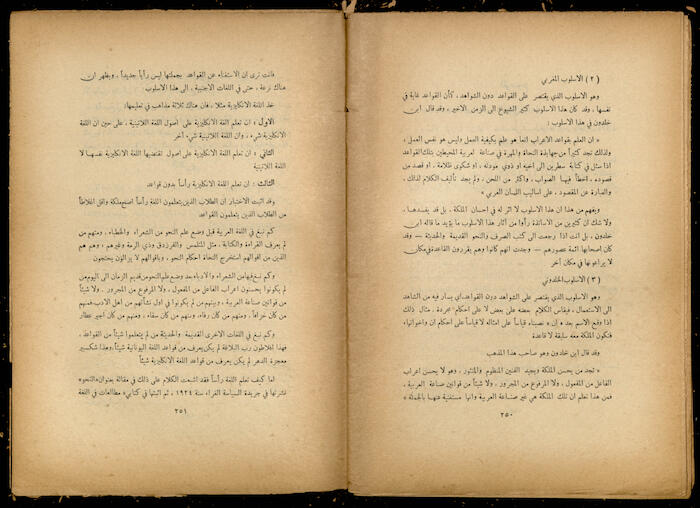 ( ٢ ) الاسلوب المغربي
وهو الاسلوب الذي يقتصر على القواعد دون الشواهد ، كأن القواعد غاية في
نفسها ، وقد كان هذا الاسلوب كثير الشيوع الى الزمن الاخير ، وقد قال ابن
خلدون في هذا الاسلوب :
« ان العلم بقواعد الاعراب انما هو علم بكيفية العمل وليس هو نفس العمل ،
ولذلك نجد كثيراً من جهابذة النحاة والمهرة في صناعة العربية المحيطين بتلك القواعد
اذا سئل في كتابة سطرين الى اخيه او ذوي مودته ، او شكوى ظلامة ، او قصد من
قصوده ، اخطأ فيها الصواب ، واكثر من اللحن ، ولم يجد تأليف الكلام لذلك ،
والعبارة عن المقصود ، على اساليب اللسان العربي »
ويفهم من هذا ان هذا الاسلوب لا اثر له في احسان الملكة ، بل قد يفسدها ،
ولا شك ان كثيرين من الاساتذة رأوا من آثار هذا الاسلوب ما يؤيد ما قاله ابن
خلدون ، بل انت اذا رجعت الى كتب الصرف والنحو القديمة والحديثة — وقد
كان اصحابها أئمة عصورهم — وجدت انهم كانوا وهم يقررون القاعدة في مكان
لا يراعونها في مكان آخر
( ٣ ) الاسلوب الخلدوني
وهو الاسلوب الذي يقتصر على الشواهد دون القواعد، اي يسار فيه من الشاهد
الى الاستعمال ، فيقاس الكلام بعضه على بعض لا على احكام مجردة . مثال ذلك
اذا وقع الاسم بعد « ان » نصبناه قياساً على امثاله لا قياساً على احكام ان واخواتها ،
فتكون الملكة معه سابقة لا قاعدة
وقد قال ابن خلدون وهو صاحب هذا المذهب
« نجد من يحسن الملكة ويجيد الفنين المنظوم والمنثور ، وهو لا يحسن اعراب
الفاعل من المفعول ، ولا المرفوع من المجرور ، ولا شيئاً من قوانين صناعة العربية ،
فمن هذا تعلم ان تلك الملكة هي غير صناعة العربية وانها مستغنية عنها بالجملة »
٢٥٠
فانت ترى ان الاستغناء عن القواعد بجملتها ليس رأياً جديداً ، ويظهر ان
هناك نزعة ، حتى في اللغات الاجنبية ، الى هذا الاسلوب
خذ اللغة الانكليزية مثلا ، فان هناك ثلاثة مذاهب في تعليمها:
الاول : ان تعلم اللغة الانكليزية على اصول اللغة اللاتينية ، على حين ان اللغة
الانكليزية شيء ، وان اللغة اللاتينية شيء آخر
الثاني : ان تعلم اللغة الانكليزية على اصول تقتضيها اللغة الانكليزية نفسها لا
اللغة اللاتينية
الثالث : ان تعلم اللغة الانكليزية رأساً بدون قواعد
وقد اثبت الاختبار ان الطلاب الذين يتعلمون اللغة رأساً اصح ملكة واقل اغلاطاً
من الطلاب الذين يتعلمون القواعد
كم نبغ في اللغة العربية قبل وضع علم النحو من الشعراء والخطباء ، ومنهم من
لم يعرف القراءة والكتابة ، مثل المتلمس والفرزدق وذي الرمة وغيرهم ، وهم هم
الذين من اقوالهم استخرج النحاة احكام النحو ، وباقوالهم لا يزالون يحتجون
وكم نبغ فيها من الشعراء والادباء بعد وضع علم النحو من قديم الزمان الى اليوم من
لم يكونوا يحسنون اعراب الفاعل من المفعول ، ولا المرفوع من المجرور . ولا شيئاً
من قوانين صناعة العربية ، وبينهم من لم يكونوا في اول نشأتهم من اهل الادب ، فمنهم
من كان خزافاً ، ومنهم من كان رفاء، ومنهم من كان سقاء ، ومنهم من كان اجير عطار
وكم نبغ في اللغات الاخرى القديمة والحديثة من لم يتعلموا شيئاً من القواعد ،
فهذا افلاطون رب البلاغة لم يكن يعرف من قواعد اللغة اليونانية شيئاً، وهذا شكسبير
معجزة الدهر لم يكن يعرف من قواعد اللغة الانكليزية شيئاً
اما كيف تعلم اللغة رأساً فقد اشبعت الكلام على ذلك في مقالة بعنوان «النحو»
نشرتها في جريدة السياسة الغراء سنة ١٩٢٤ ، ثم اثبتها في كتابي « مطالعات في اللغة
٢٥١